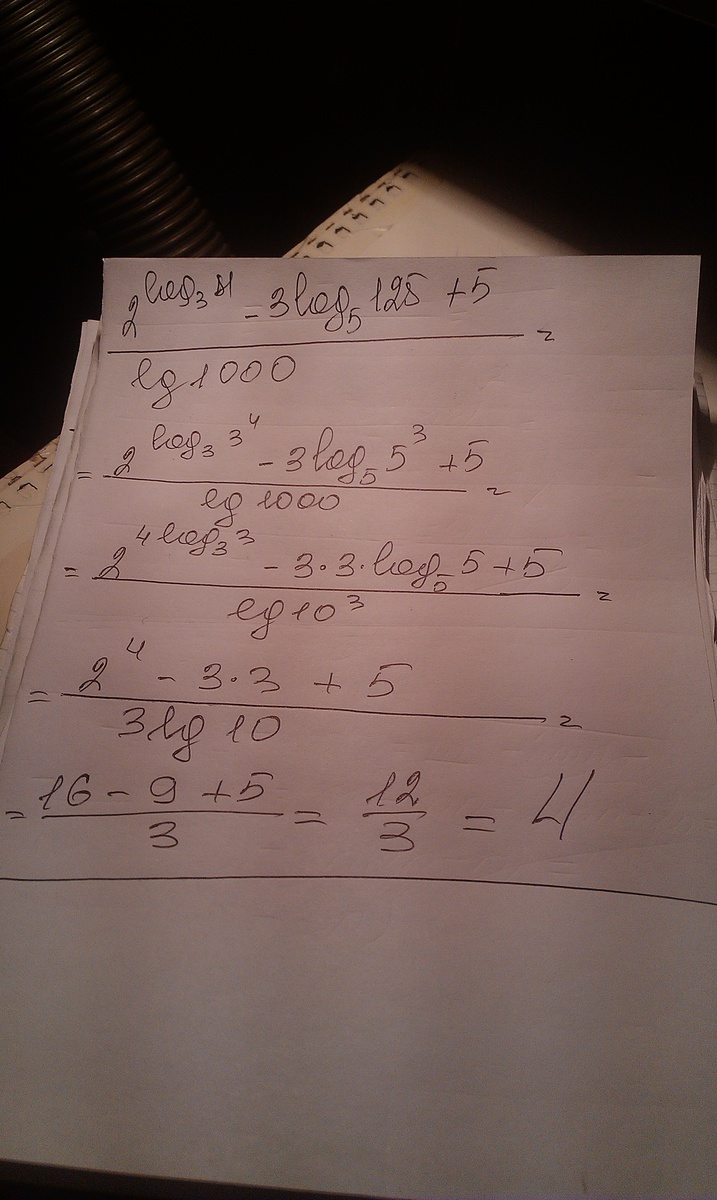 2^{log_3 81} - 3 log_5 125 + 5 =
lg 1000
= 2^{log_3 3^4} - 3 log_5 5^3 + 5 =
lg 1000
= 2^{4 log_3 3} - 3 · 3 · log_5 5 + 5 =
lg 10^3
= 2^4 - 3 · 3 + 5 =
3 lg 10
= 16 - 9 + 5 = 12 = 4
3 3